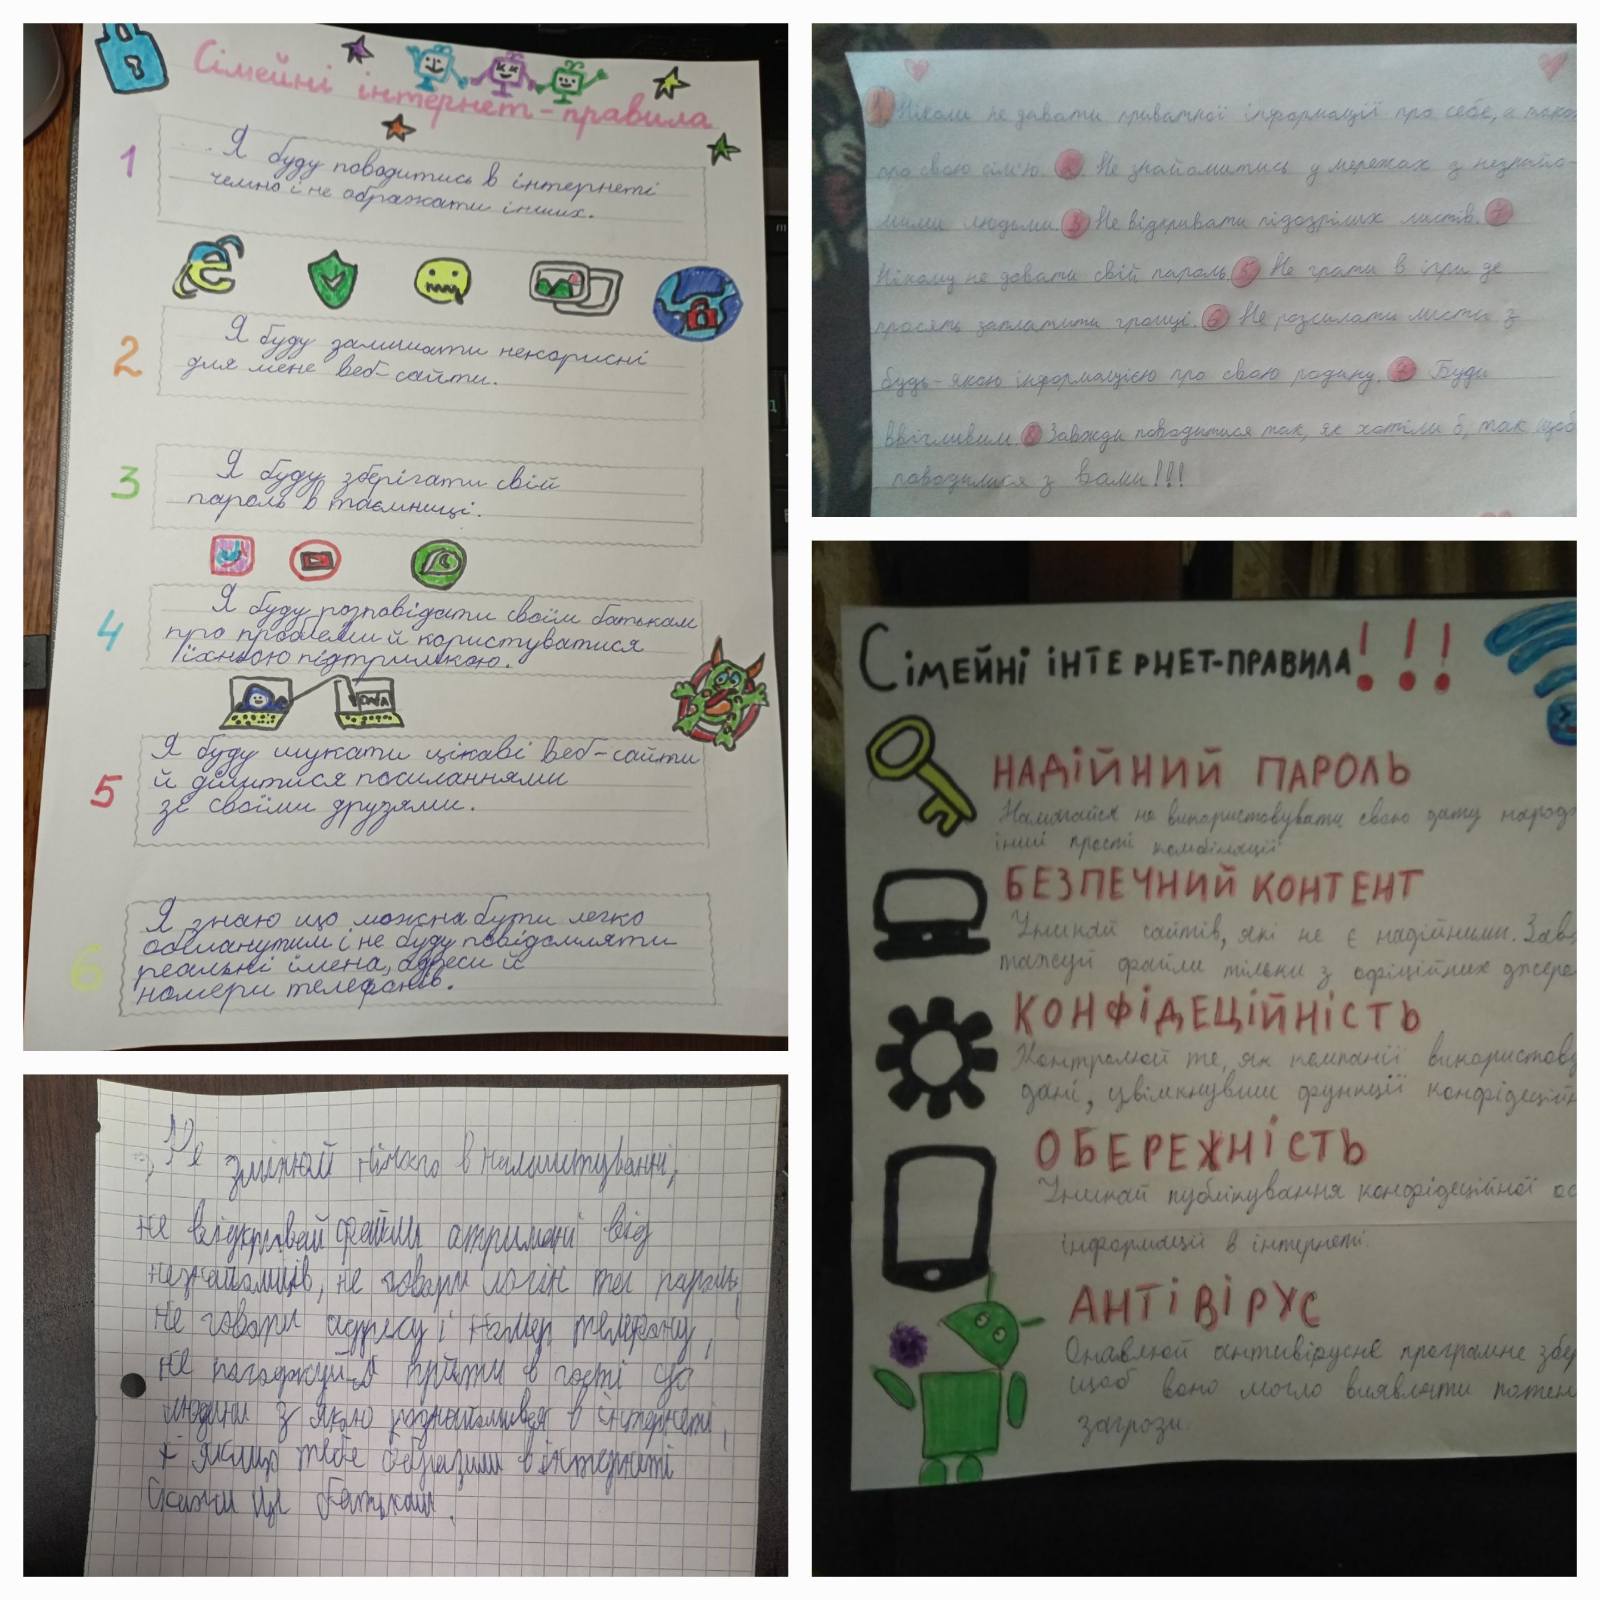 Сімейні інтернет-правила
1
Я буду поводитись в інтернеті
чемно і не ображати інших.
2
Я буду залишати некорисні
для мене веб-сайти.
3
Я буду зберігати свій
пароль в таємниці.
4
Я буду розповідати своїм батькам
про проблеми й користуватися
їхньою підтримкою.
5
Я буду шукати цікаві веб-сайти
й ділитися посиланнями
зі своїми друзями.
6
Я знаю що можна бути легко
обманутим і не буду повідомляти
реальні імена, адреси й
номери телефонів.
1 Ніколи не давати приватної інформації про себе, а також
про свою сім'ю. 2 Не знайомитись у мережах з незнайо-
мими людьми 3 Не відкривати підозрілих листів. 4
Нікому не давати свій пароль 5 Не грати в ігри де
просять заплатити гроші. 6 Не розсилати листи з
будь-якою інформацією про свою родину. 7 Будь
ввічливим. 8 Завжди поводитися так, як хотіли б, так щоб
поводилися з вами!!!
Сімейні інтернет-правила!!!
НАДІЙНИЙ ПАРОЛЬ
Намагайся не використовувати свою дату народ
інші прості комбінації
БЕЗПЕЧНИЙ КОНТЕНТ
Уникай сайтів, які не є надійними. Зав
тажуй файли тільки з офіційних джере
КОНФІДЕЦІЙНІСТЬ
Контролюй те, як компанії використову
дані, увімкнувши функції конфідецій
ОБЕРЕЖНІСТЬ
Уникай публікування конфідеційної ос
інформації в інтернеті.
АНТІВІРУС
Онавлюй антивірусне програмне збе
щоб воно могло виявляти потен
загрози.
Не змінюй нічого в налаштуванні,
не відкривай файли атримані від
незнайомців, не говори логін та пароль,
не говори адресу і номер телефону,
не погоджуйся прийти в гості до
людини з якою познайомився в інтернеті,
якщо тебе образили в інтернеті
Скажи це батькам.